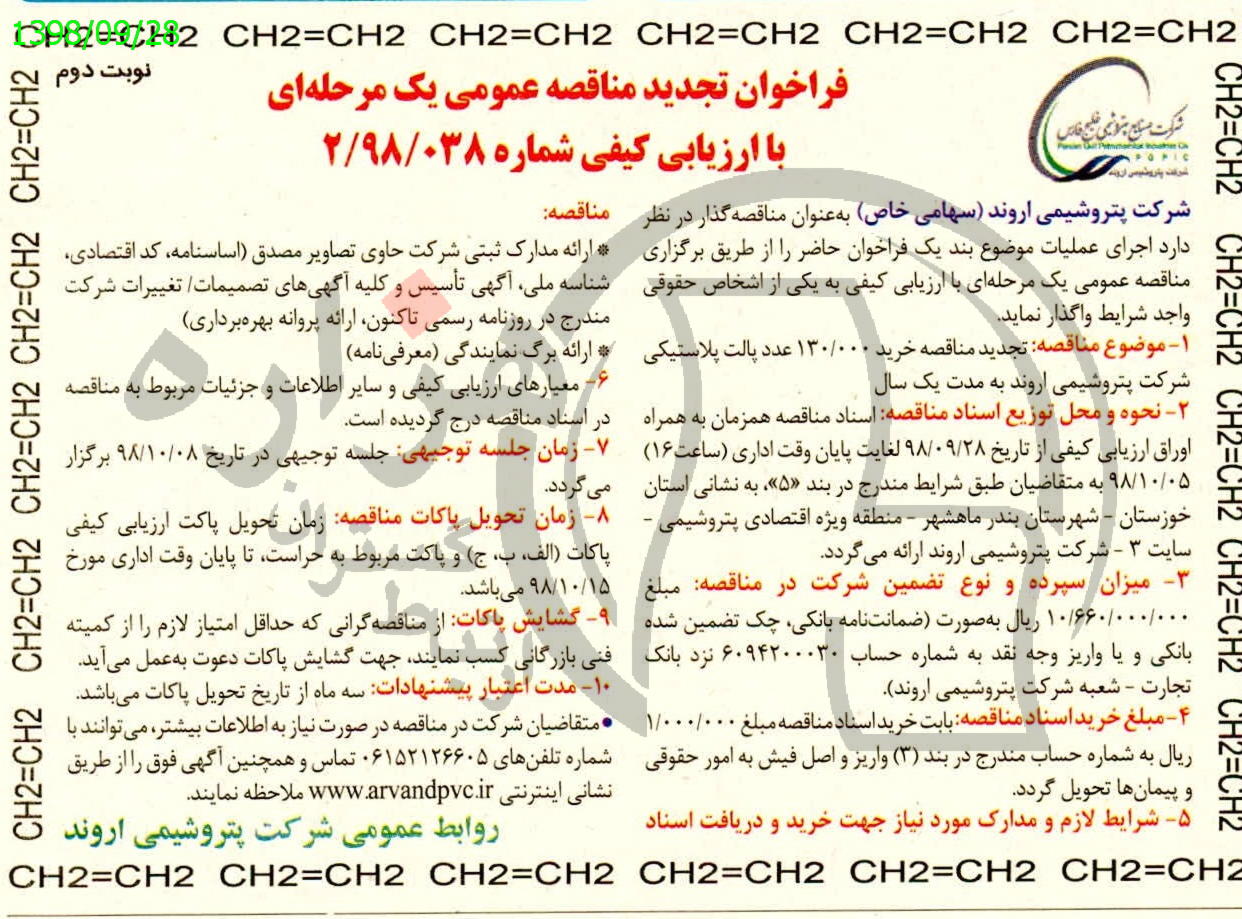 1398/09/28
CH2=CH2 CH2=CH2 CH2=CH2 CH2=CH2 CH2=CH2 CH2=CH2
نوبت دوم
فراخوان تجدید مناقصه عمومی یک مرحله‌ای
با ارزیابی کیفی شماره ۲/۹۸/۰۳۸
شرکت صنایع پتروشیمی خلیج فارس
Persian Gulf Petrochemical Industries Co
P G P I C
شرکت پتروشیمی اروند
CH2=CH2 CH2=CH2 CH2=CH2 CH2=CH2 CH2=CH2
شرکت پتروشیمی اروند (سهامی خاص) به‌عنوان مناقصه‌گذار در نظر
دارد اجرای عملیات موضوع بند یک فراخوان حاضر را از طریق برگزاری
مناقصه عمومی یک مرحله‌ای با ارزیابی کیفی به یکی از اشخاص حقوقی
واجد شرایط واگذار نماید.
۱- موضوع مناقصه: تجدید مناقصه خرید ۱۳۰/۰۰۰ عدد پالت پلاستیکی
شرکت پتروشیمی اروند به مدت یک سال
۲- نحوه و محل توزیع اسناد مناقصه: اسناد مناقصه همزمان به همراه
اوراق ارزیابی کیفی از تاریخ ۹۸/۰۹/۲۸ لغایت پایان وقت اداری (ساعت۱۶)
۹۸/۱۰/۰۵ به متقاضیان طبق شرایط مندرج در بند «۵»، به نشانی استان
خوزستان - شهرستان بندر ماهشهر - منطقه ویژه اقتصادی پتروشیمی -
سایت ۳ - شرکت پتروشیمی اروند ارائه می‌گردد.
۳- میزان سپرده و نوع تضمین شرکت در مناقصه: مبلغ
۱۰/۶۶۰/۰۰۰/۰۰۰ ریال به‌صورت (ضمانت‌نامه بانکی، چک تضمین شده
بانکی و یا واریز وجه نقد به شماره حساب ۶۰۹۴۲۰۰۰۳۰ نزد بانک
تجارت - شعبه شرکت پتروشیمی اروند).
۴-مبلغ خرید اسناد مناقصه: بابت خرید اسناد مناقصه مبلغ ۱/۰۰۰/۰۰۰
ریال به شماره حساب مندرج در بند (۳) واریز و اصل فیش به امور حقوقی
و پیمان‌ها تحویل گردد.
۵- شرایط لازم و مدارک مورد نیاز جهت خرید و دریافت اسناد
مناقصه:
* ارائه مدارک ثبتی شرکت حاوی تصاویر مصدق (اساسنامه، کد اقتصادی،
شناسه ملی، آگهی تأسیس و کلیه آگهی‌های تصمیمات/ تغییرات شرکت
مندرج در روزنامه رسمی تاکنون، ارائه پروانه بهره‌برداری)
* ارائه برگ نمایندگی (معرفی‌نامه)
۶- معیارهای ارزیابی کیفی و سایر اطلاعات و جزئیات مربوط به مناقصه
در اسناد مناقصه درج گردیده است.
۷- زمان جلسه توجیهی: جلسه توجیهی در تاریخ ۹۸/۱۰/۰۸ برگزار
می‌گردد.
۸- زمان تحویل پاکات مناقصه: زمان تحویل پاکت ارزیابی کیفی
پاکات (الف، ب، ج) و پاکت مربوط به حراست، تا پایان وقت اداری مورخ
۹۸/۱۰/۱۵ می‌باشد.
۹- گشایش پاکات: از مناقصه‌گرانی که حداقل امتیاز لازم را از کمیته
فنی بازرگانی کسب نمایند، جهت گشایش پاکات دعوت به‌عمل می‌آید.
۱۰- مدت اعتبار پیشنهادات: سه ماه از تاریخ تحویل پاکات می‌باشد.
• متقاضیان شرکت در مناقصه در صورت نیاز به اطلاعات بیشتر، می‌توانند با
شماره تلفن‌های ۰۶۱۵۲۱۲۶۶۰۵ تماس و همچنین آگهی فوق را از طریق
نشانی اینترنتی www.arvandpvc.ir ملاحظه نمایند.
روابط عمومی شرکت پتروشیمی اروند
CH2=CH2 CH2=CH2 CH2=CH2 CH2=CH2 CH2=CH2
CH2=CH2 CH2=CH2 CH2=CH2 CH2=CH2 CH2=CH2 CH2=CH2